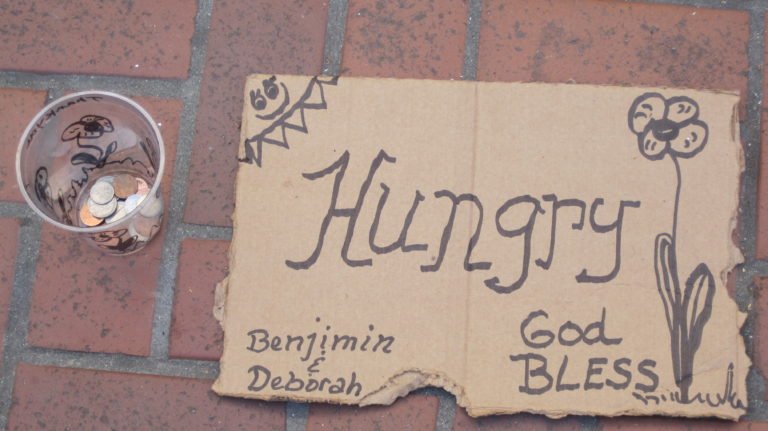 Hungry
God
BLESS
Benjimin
&
Deborah